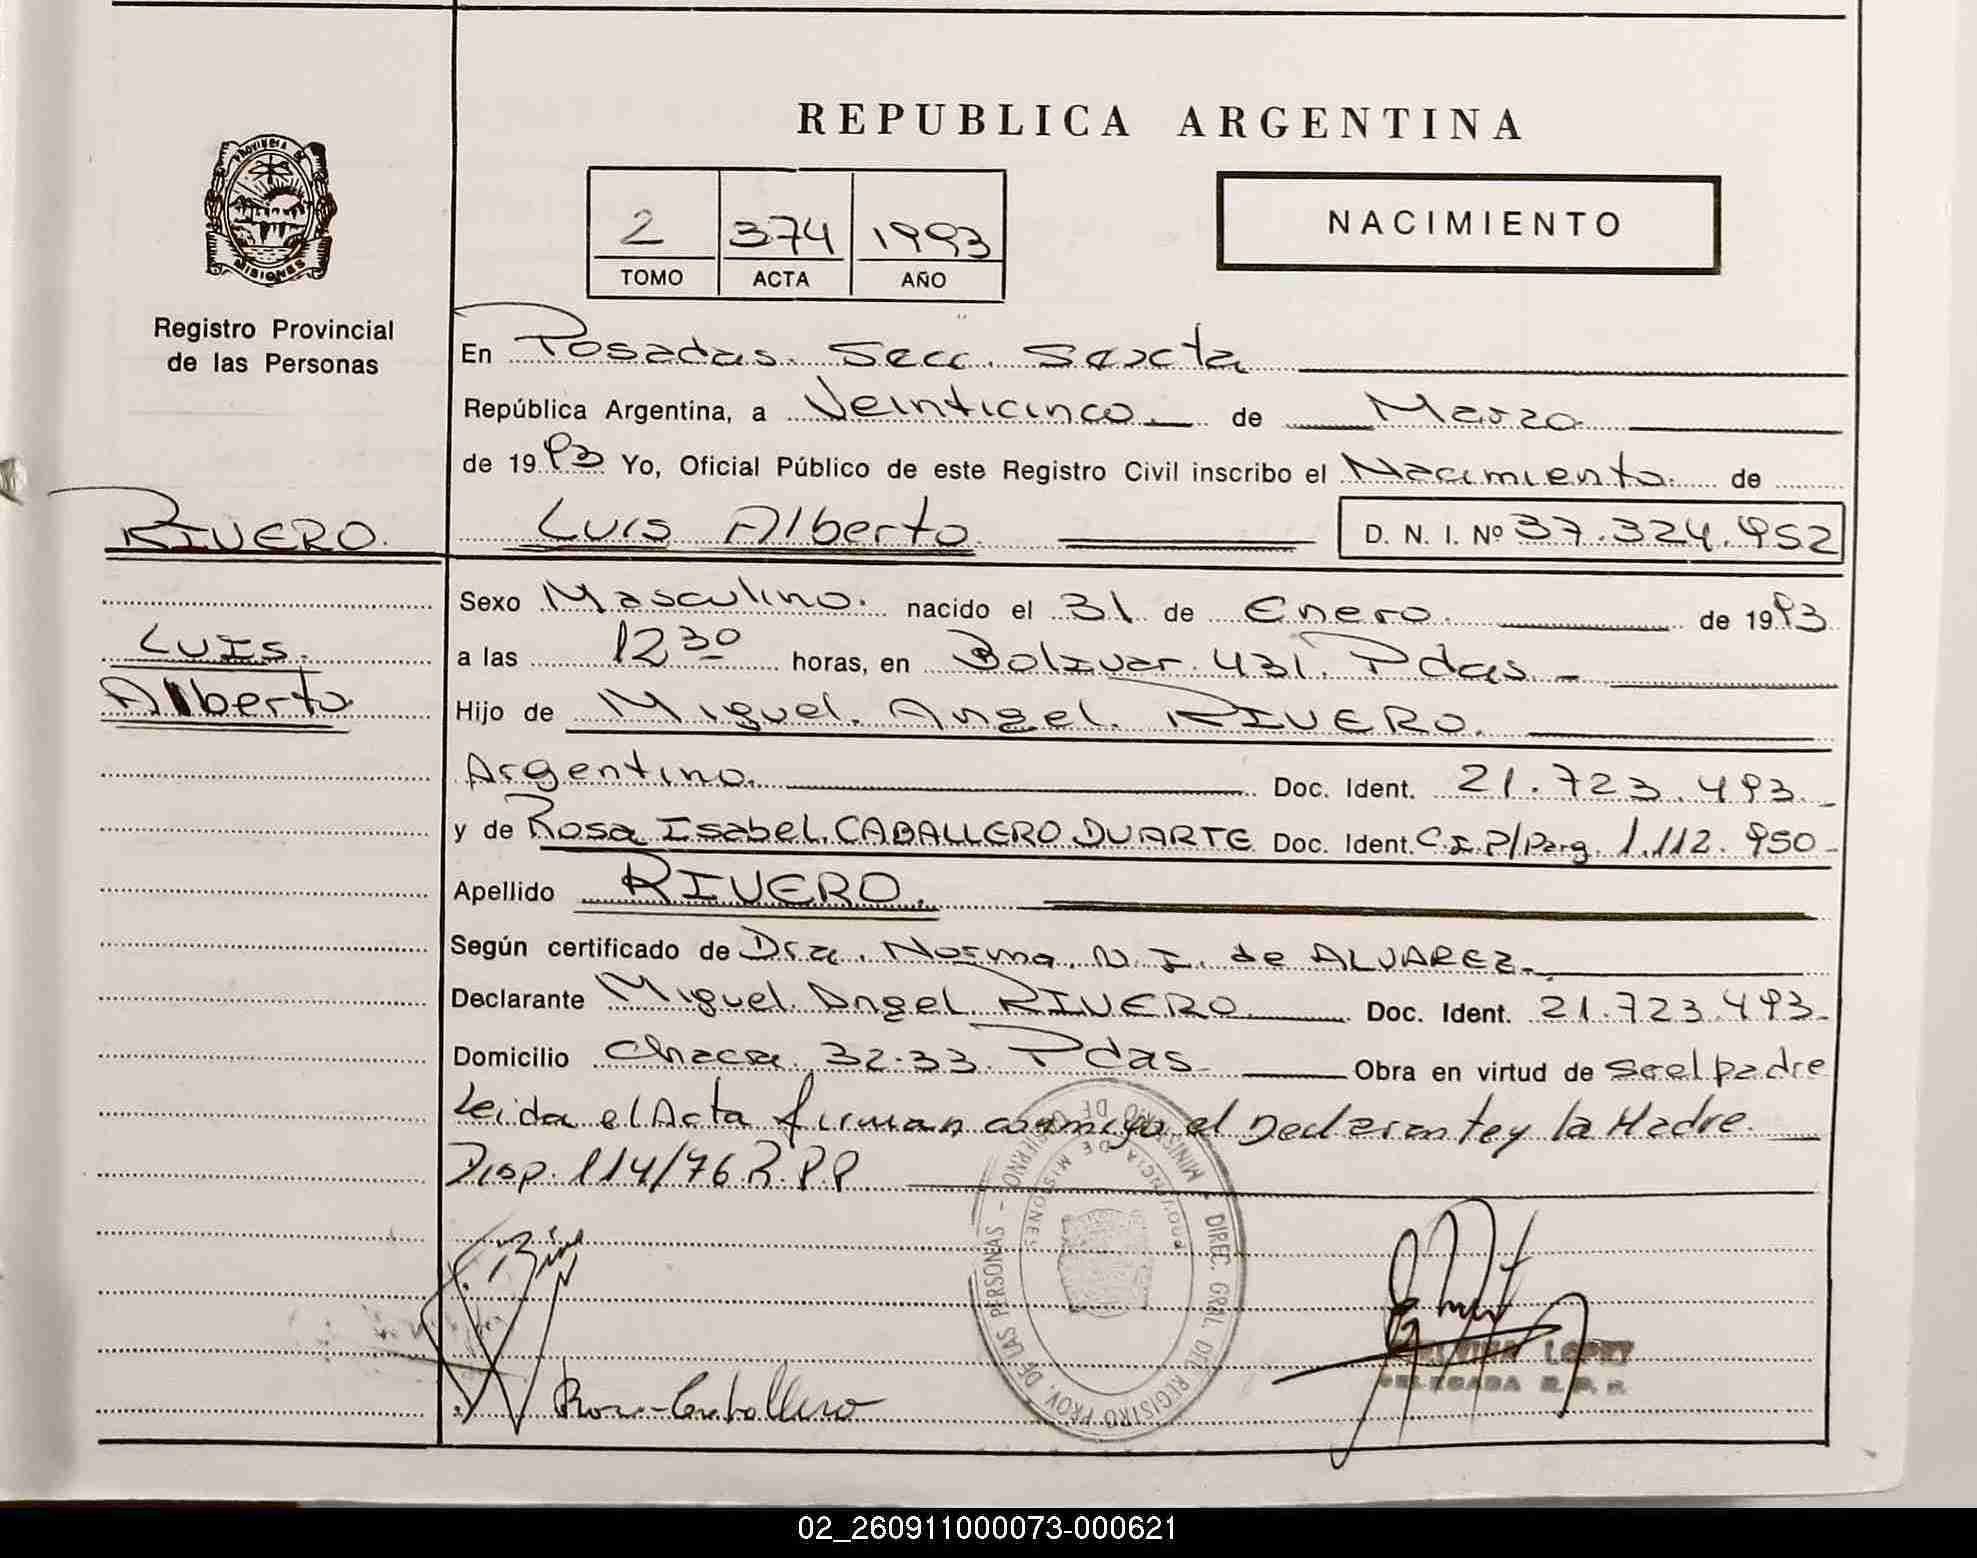 REPUBLICA ARGENTINA
PROVINCIA DE
MISIONES
Registro Provincial
de las Personas
2 374 1993
TOMO ACTA AÑO
NACIMIENTO
En Posadas. Secc. Sexta
República Argentina, a Veinticinco de Marzo
de 1993 Yo, Oficial Público de este Registro Civil inscribo el Nacimiento de
RIVERO. Luis Alberto D. N. I. Nº 37.324.952
Sexo Masculino. nacido el 31 de Enero. de 1993
LUIS.
Alberto
a las 12 30 horas, en Bolivar. 431. Pdas. -
Hijo de Miguel. Angel. RIVERO.
Argentino. Doc. Ident. 21.723.493.
y de Rosa Isabel. CABALLERO DUARTE Doc. Ident. C.I.P/Parg. 1.112.950 -
Apellido RIVERO.
Según certificado de Dra. Norma. N. I. de ALVAREZ.
Declarante Miguel. Angel. RIVERO. Doc. Ident. 21.723.493.
Domicilio Chacra. 32-33. Pdas. Obra en virtud de Ser el padre
Leida el Acta firman conmigo el Declarante y la Madre.
Disp. 114/76 R.P.P
MINISTERIO DE GOBIERNO - DIREC. GRAL. DEL REGISTRO PROV. DE LAS PERSONAS
PROVINCIA DE MISIONES
Rosa Caballero
LOPEZ
DELEGADA R. P. P.
02_260911000073-000621